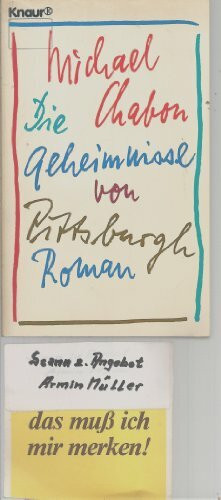 Knaur®
Michael
Chabon
Die
Geheimnisse
von
Pittsburgh
Roman
Scann z. Angebot
Armin Müller
das muß ich
mir merken!